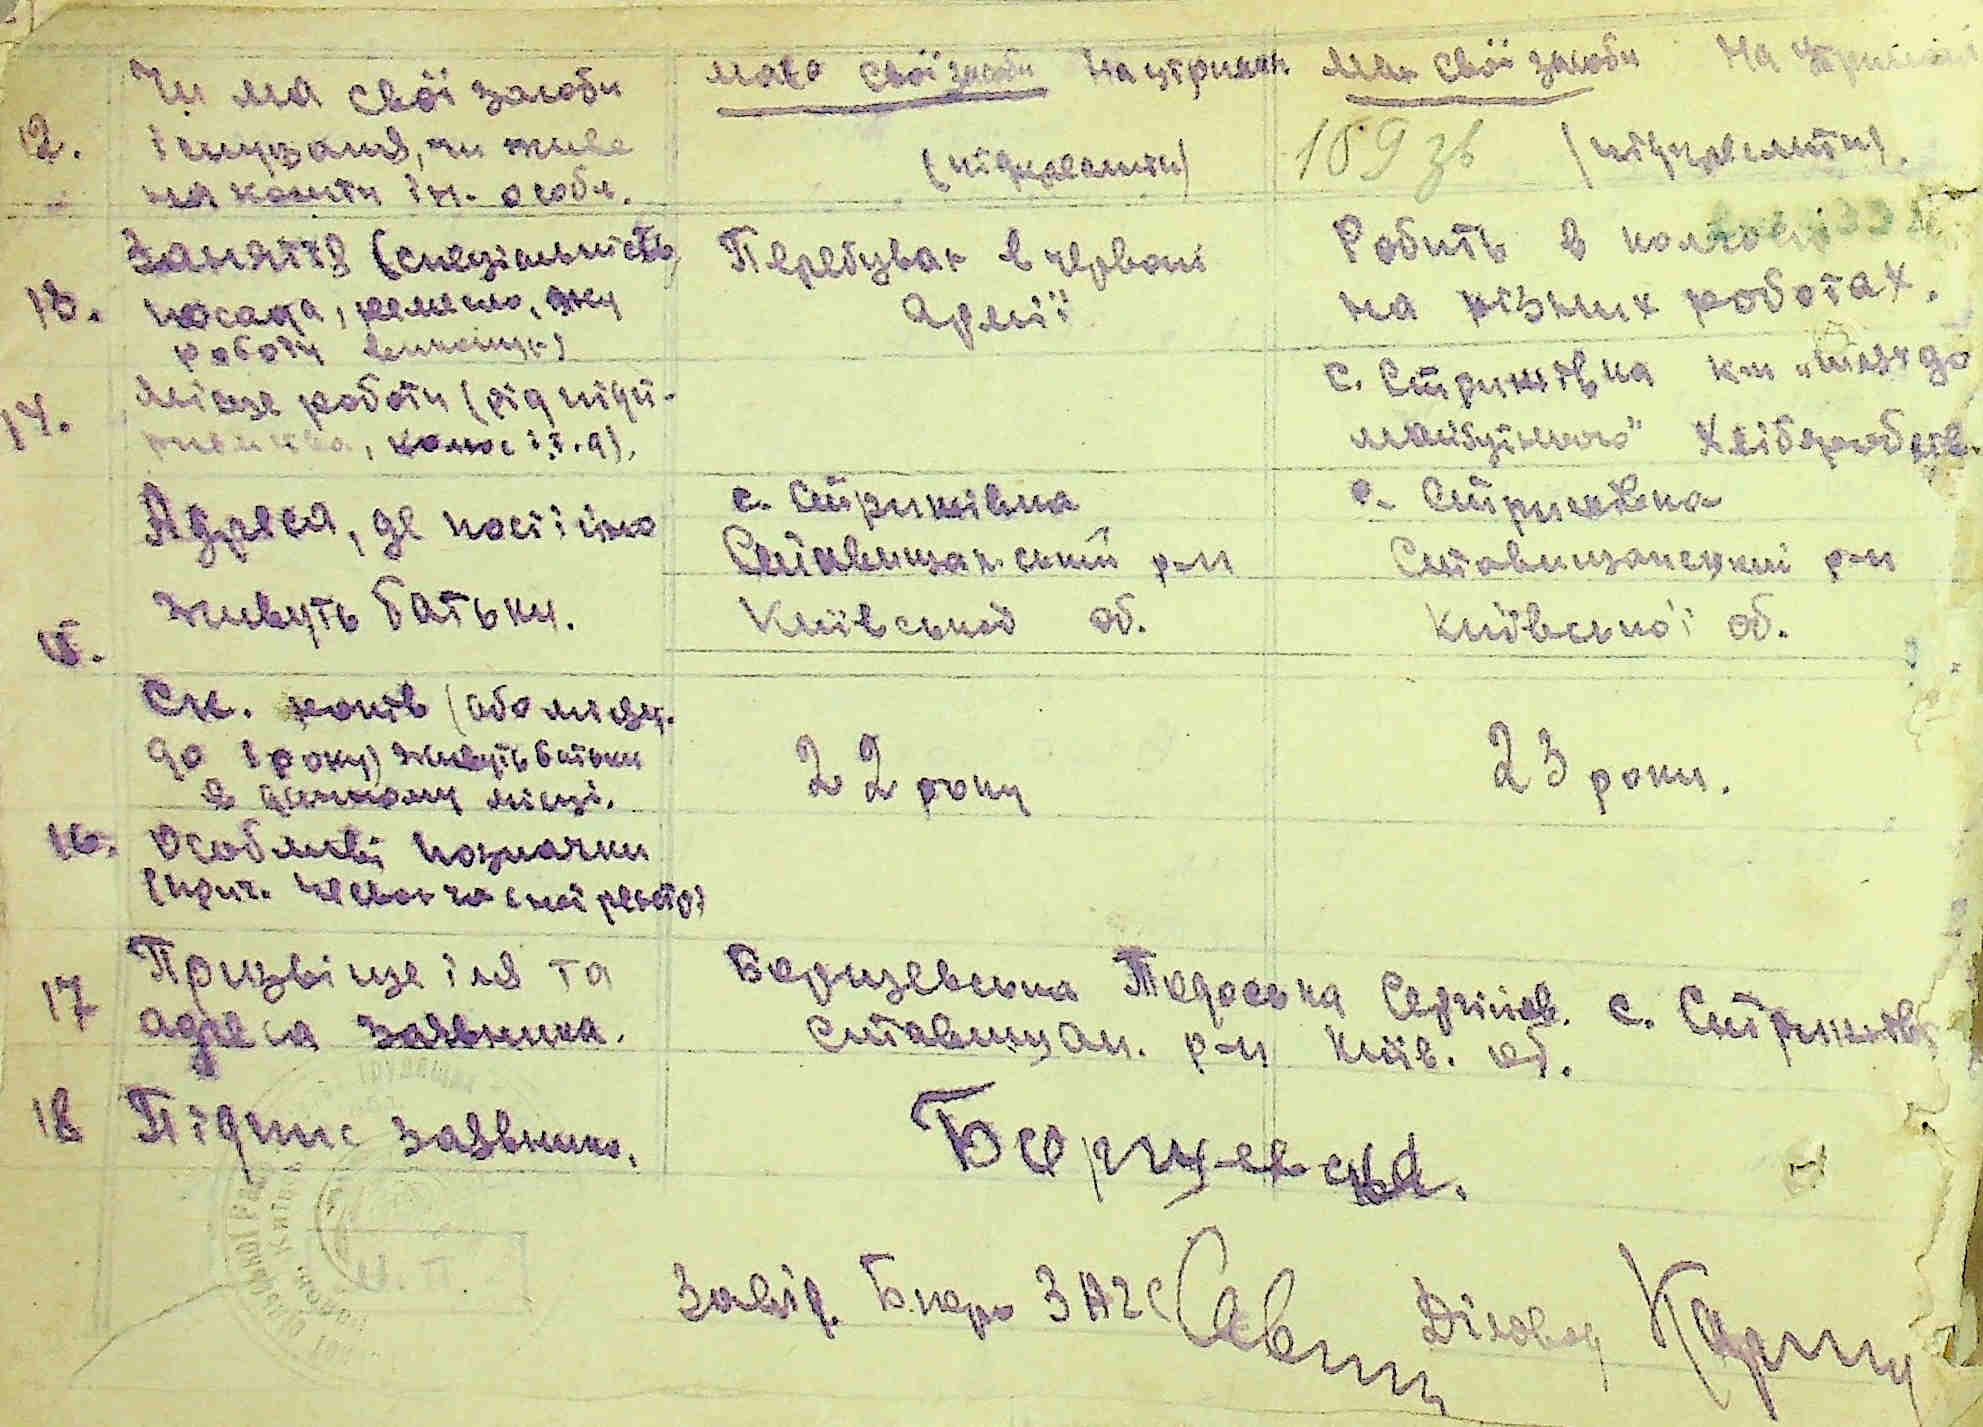 12. Чи ма свої засоби
існуваня, чи живе
на кошти ін. особи.
має свої засоби На утриман
(підкреслити)
ма свої засоби На утриман
189 зв (підкреслити).
13. Заняття (спеціальність
посада, ремесло, яку
роботу виконує)
Перебуває в червоні
армії
Робить в колгоспі
на різних роботах.
14. Місце роботи (підпри-
колгос і т.д).
с. Стрижівка к-п "Шлях до
майбутнього" Хлібороб
15. Адреса, де постійно
живуть батьки.
с. Стрижівка
Ставищанський р-н
Київської об.
с. Стрижівка
Ставищанський р-н
Київської об.
Ск. років (або місяц.
до 1 року) живуть батьки
в данному місці.
22 року
23 роки.
16. Особливі позначки
17 Призвіще імя та
адреса заявника.
Борщевська Тодоська Сергіїв. с. Стрижівк
Ставищан. р-н Київ. об.
18 Підпис заявник.
Борщевська.
Завід. Бюро ЗАГС Діловод